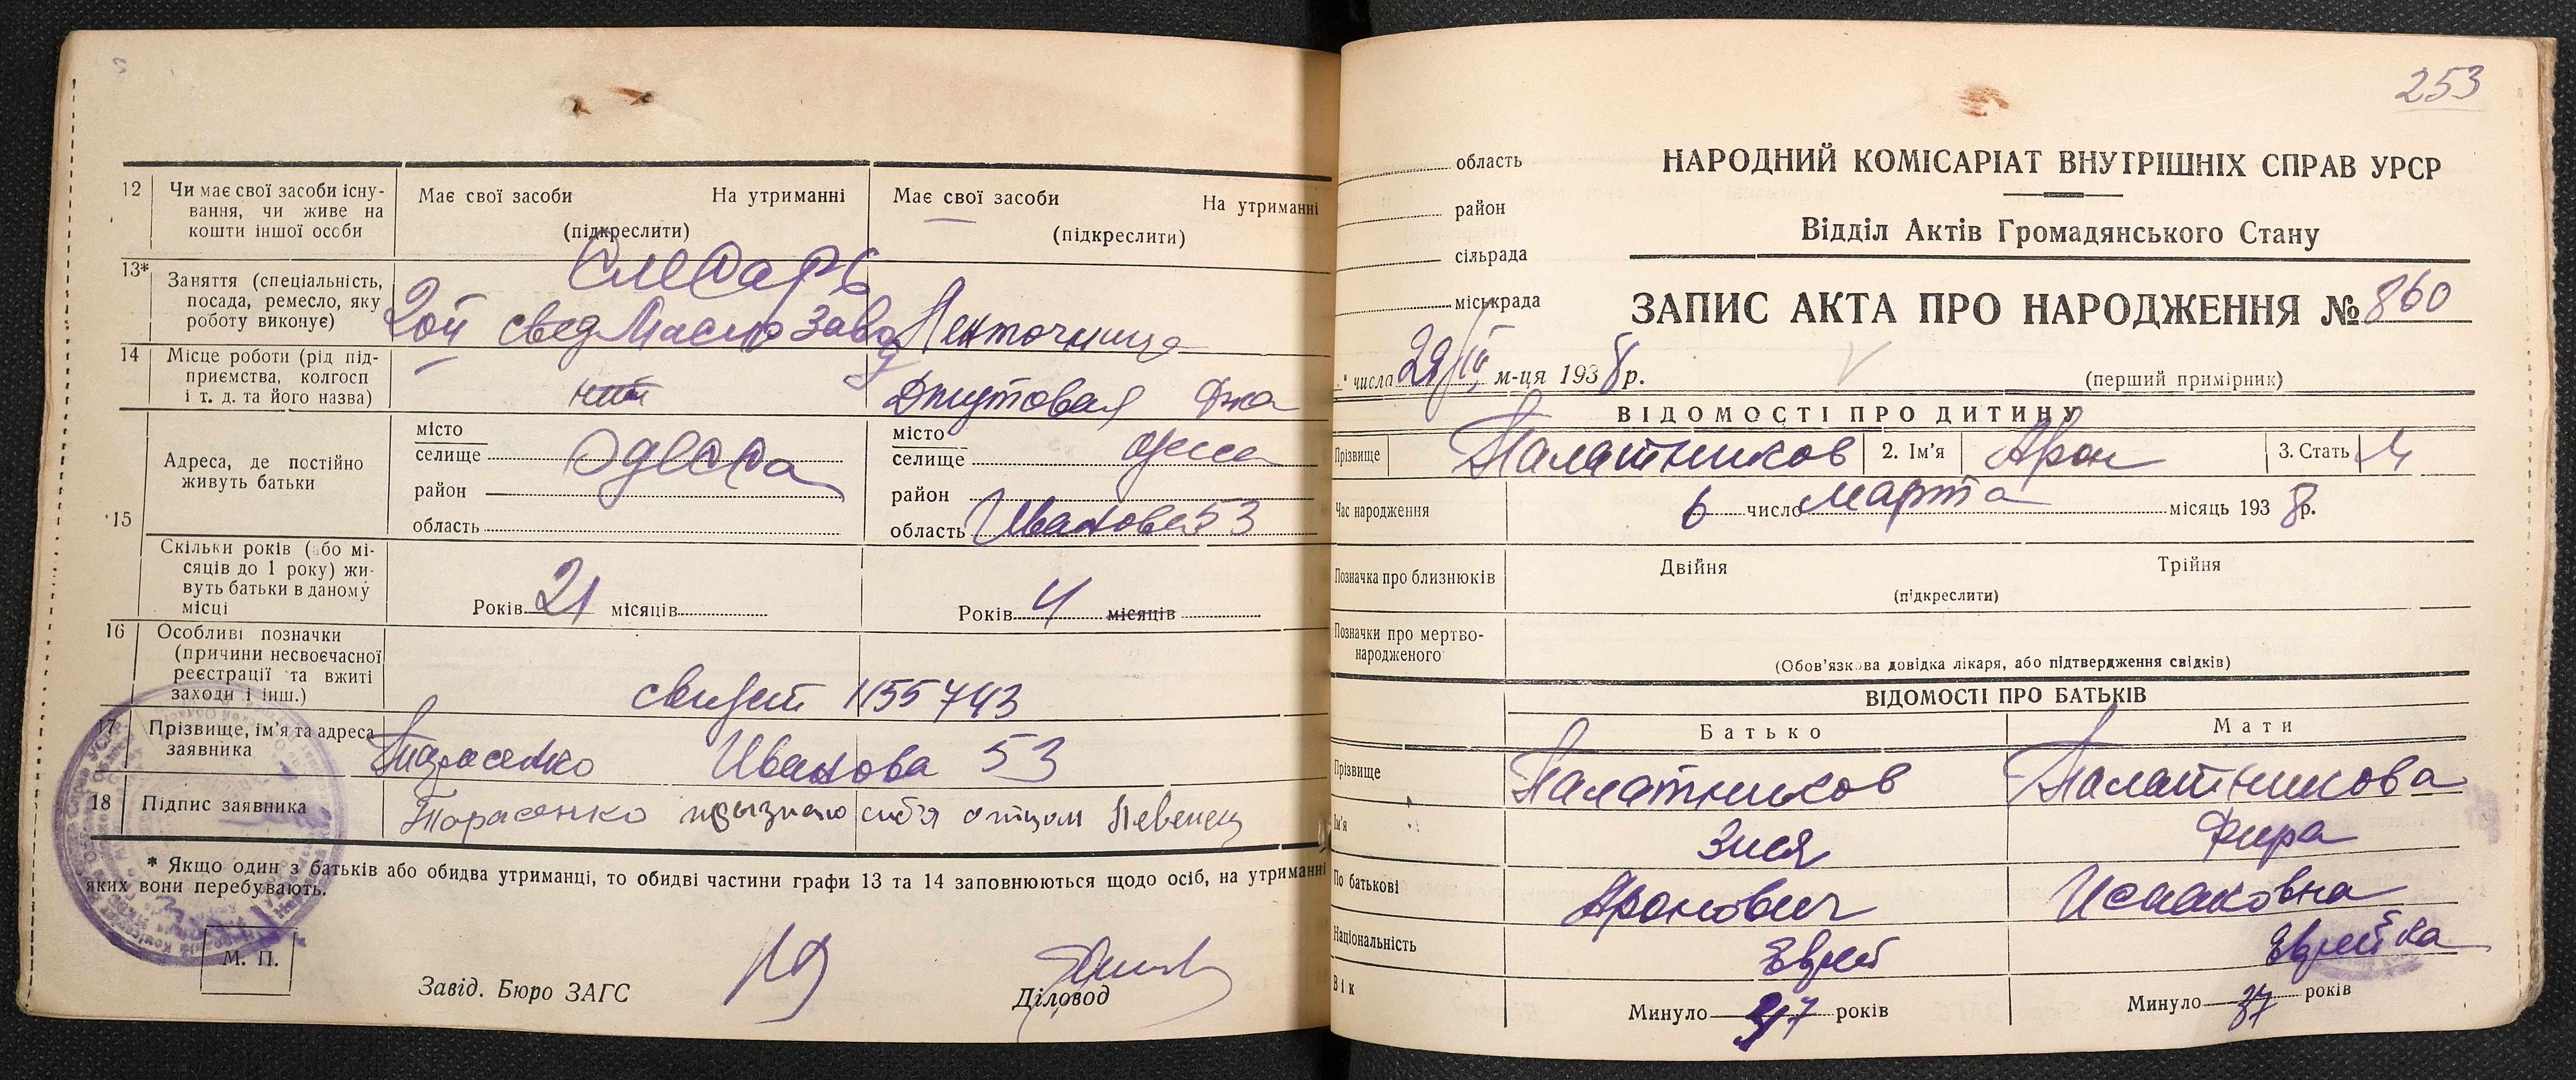 12 Чи має свої засоби існу-
вання, чи живе на
кошти іншої особи
Має свої засоби На утриманні
(підкреслити)
Має свої засоби На утриманні
(підкреслити)
13* Заняття (спеціальність,
посада, ремесло, яку
роботу виконує)
Слесарь
2ой свед Маслозавод
Ленточница
14 Місце роботи (рід під-
приємства, колгосп
і т. д. та його назва)
Джутовая Фка
15 Адреса, де постійно
живуть батьки
місто
селище Одесса
район
область
місто
селище Одесса
район
область Иванова 53
Скільки років (або мі-
сяців до 1 року) жи-
вуть батьки в даному
місці
Років 21 місяців
Років 4 місяців
16 Особливі позначки
(причини несвоєчасної
реєстрації та вжиті
заходи і інш.)
свидет 1155743
17 Прізвище, ім'я та адреса
заявника
Тарасенко Иванова 53
18 Підпис заявника
Тарасенко прызнаю себя отцом
* Якщо один з батьків або обидва утриманці, то обидві частини графи 13 та 14 заповнюються щодо осіб, на утриманні
яких вони перебувають.
М. П.
Завід. Бюро ЗАГС
Діловод
253
область
район
сільрада
міськрада
НАРОДНИЙ КОМІСАРІАТ ВНУТРІШНІХ СПРАВ УРСР
Відділ Актів Громадянського Стану
ЗАПИС АКТА ПРО НАРОДЖЕННЯ № 860
числа 29/IV м-ця 1938 р.
(перший примірник)
ВІДОМОСТІ ПРО ДИТИНУ
Прізвище Палатников 2. Ім'я Арон 3. Стать М
Час народження 6 число Марта місяць 1938 р.
Позначка про близнюків Двійня Трійня
(підкреслити)
Позначки про мертво-
народженого
(Обов'язкова довідка лікаря, або підтвердження свідків)
ВІДОМОСТІ ПРО БАТЬКІВ
Батько Мати
Прізвище Палатников Палатникова
Ім'я Зися Фира
По батькові Аронович Исааковна
Національність Еврей Еврейка
Вік
Минуло 37 років Минуло 37 років